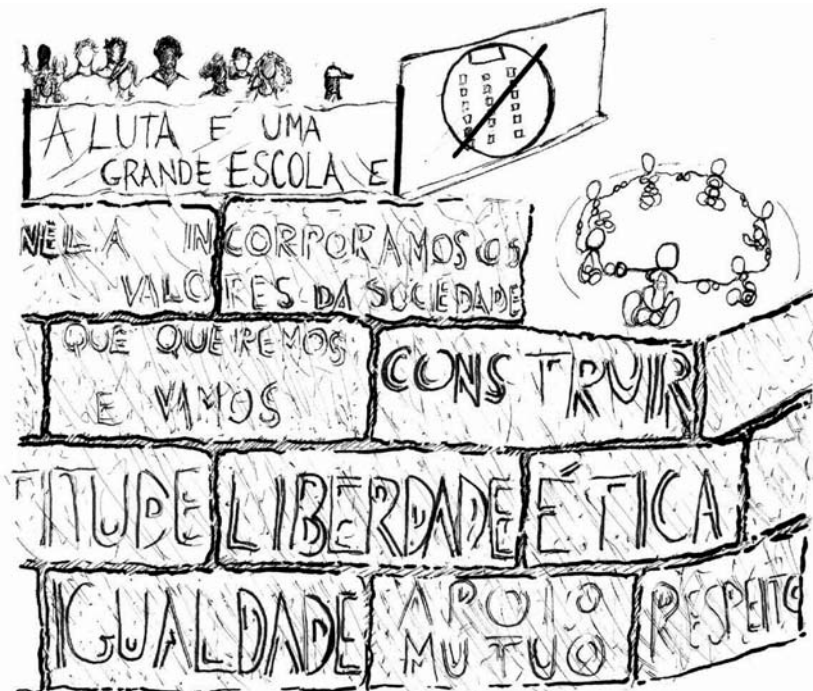 A LUTA E UMA
GRANDE ESCOLA E
NELA INCORPORAMOS OS
VALORES DA SOCIEDADE
QUE QUEREMOS
E VAMOS
CONSTRUIR
TITUDE LIBERDADE ÉTICA
IGUALDADE APOIO
MUTUO
RESPEITO